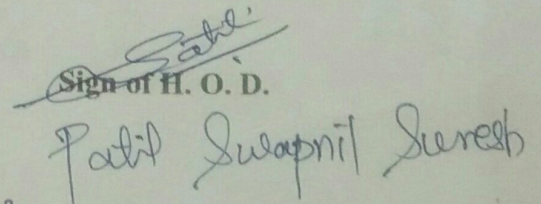 Patil
Sign of H. O. D.
Patil Swapnil Suresh